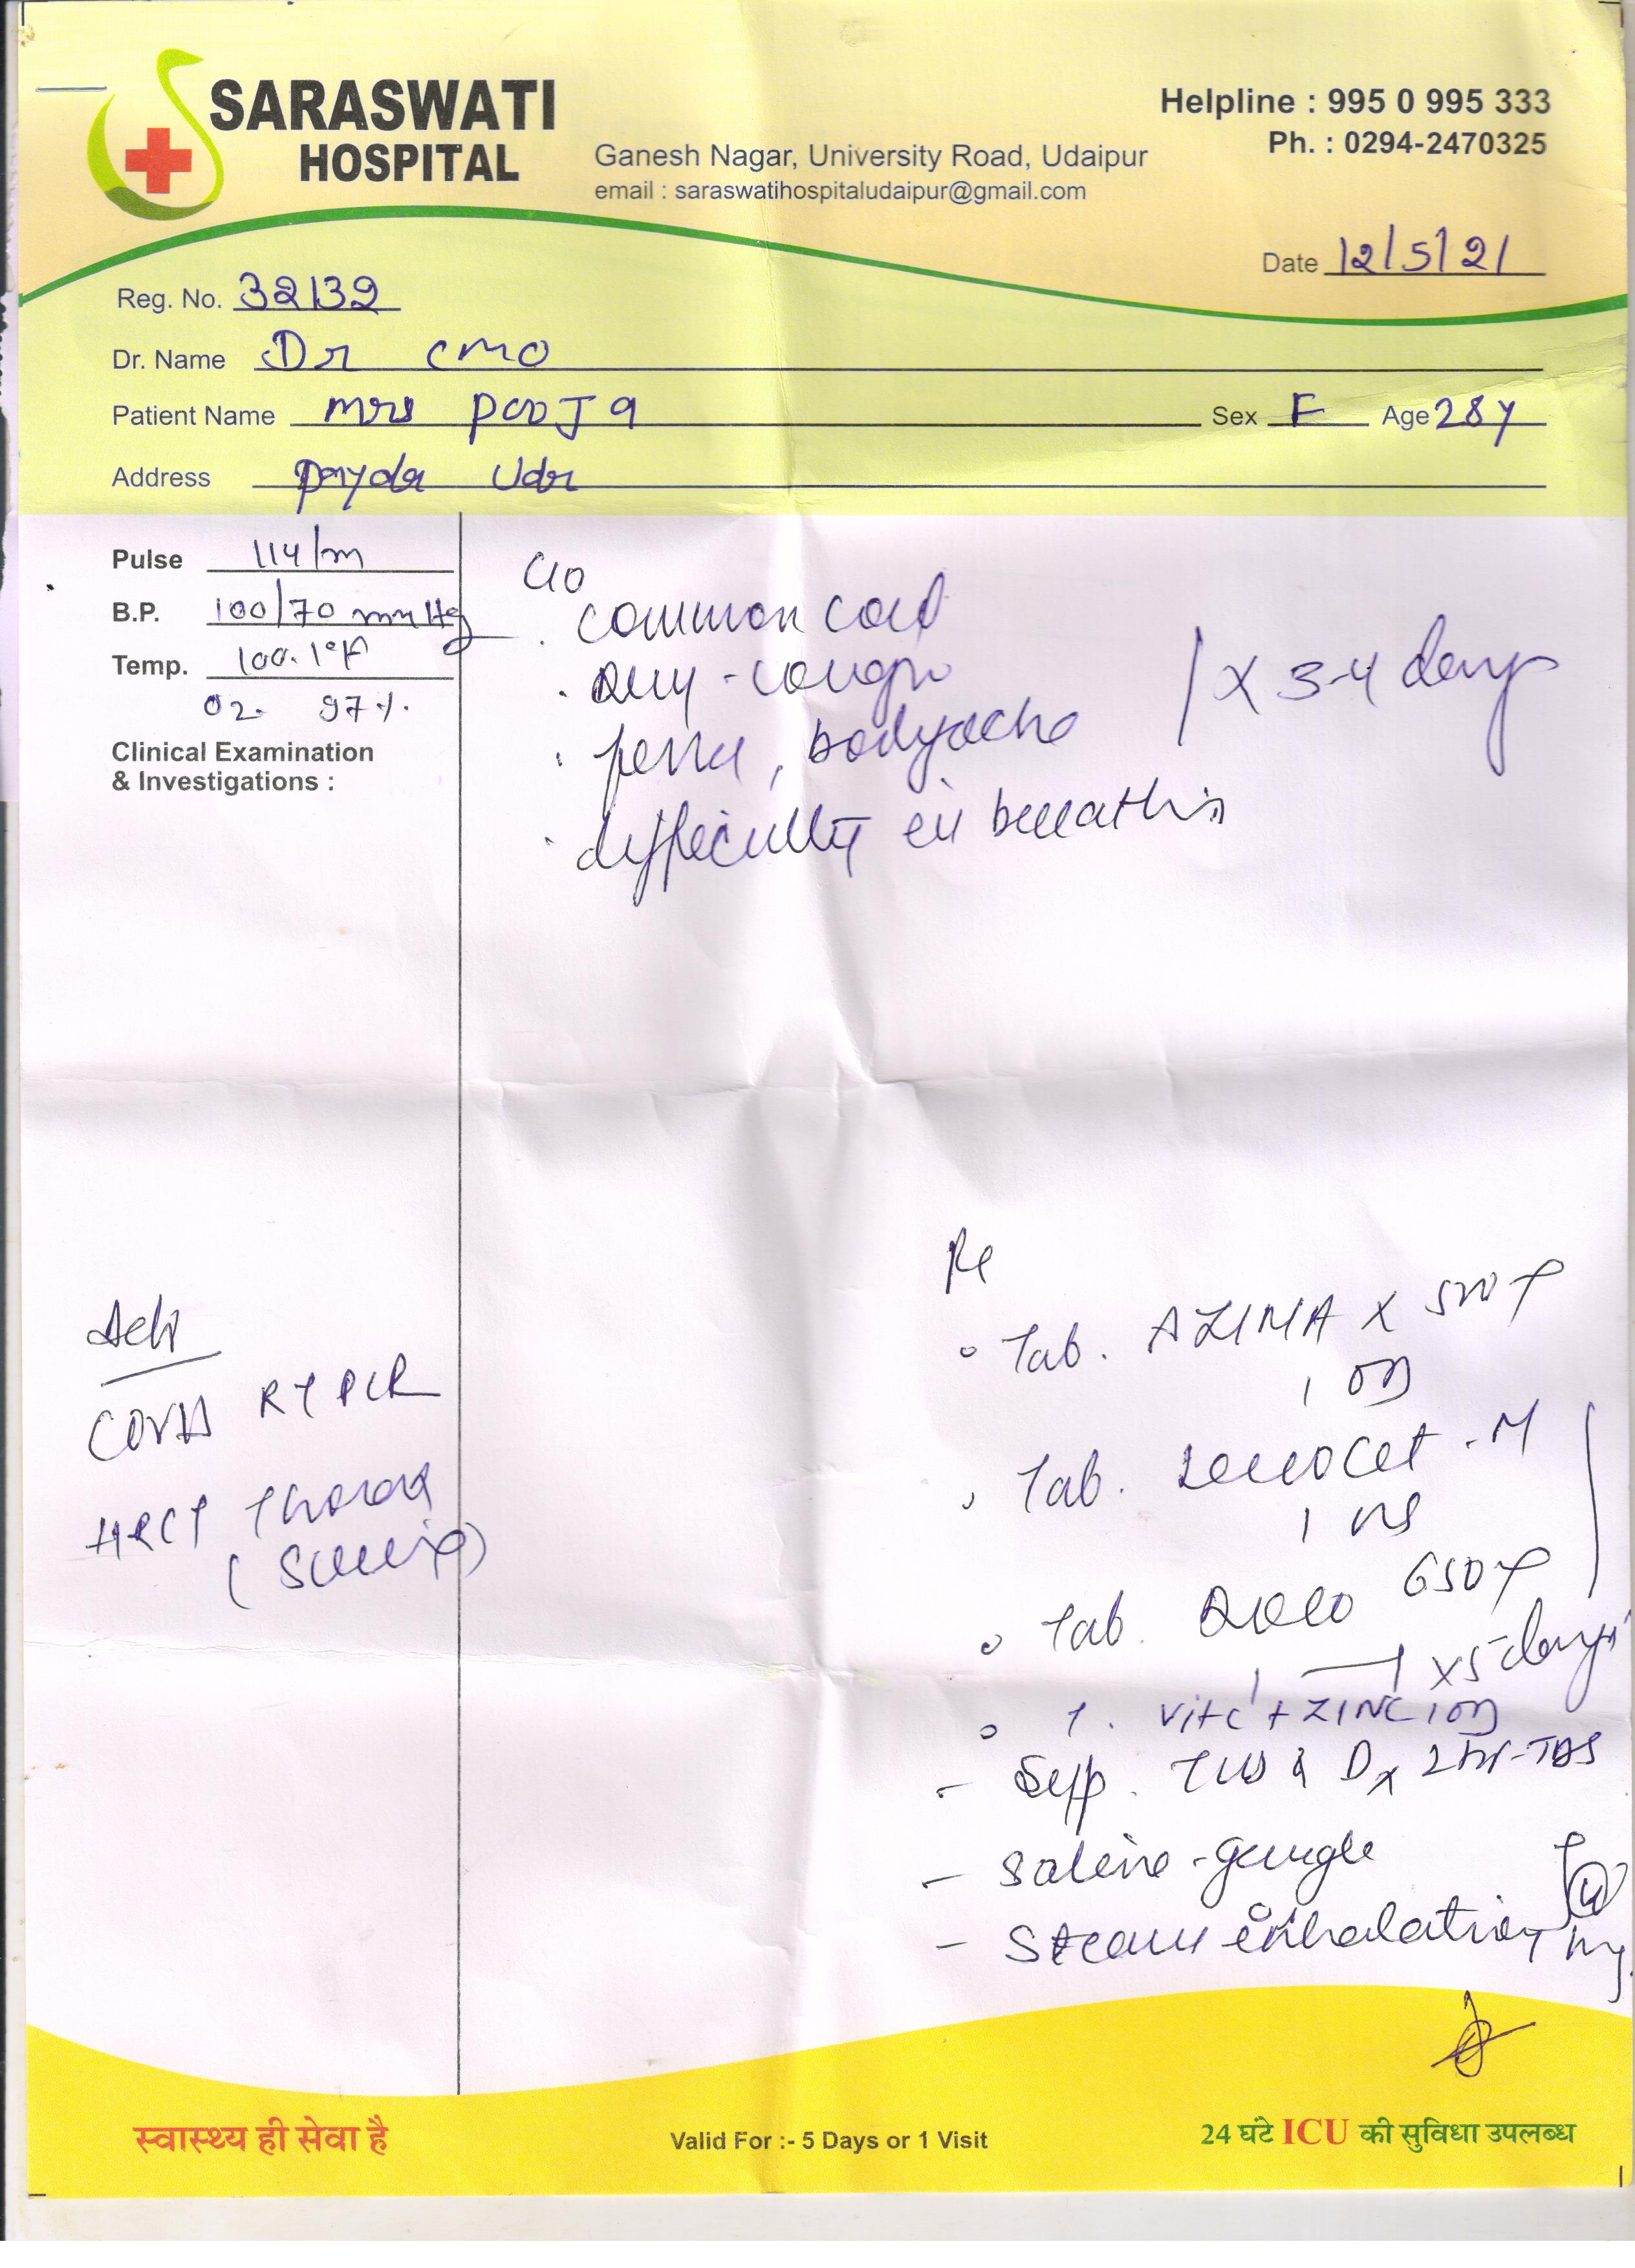 SARASWATI
HOSPITAL
Ganesh Nagar, University Road, Udaipur
email : saraswatihospitaludaipur@gmail.com
Helpline : 995 0 995 333
Ph. : 0294-2470325
Date 12/5/21
Reg. No. 32132
Dr. Name Dr CMO
Patient Name Mrs Pooja
Sex F Age 28y
Address Udr
Pulse 114/m
B.P. 100/70 mmHg
Temp. 100.1°F
O2. 97%.
Clinical Examination
& Investigations :
C/O
. common cold
. Dry-cough
. bodyache
x 3-4 days
. difficulty in breathin
Adv
COVID RTPCR
HRCT Thorax
Rx
Tab. AZIMA x 500
1 OD
Tab. -M
1 HS
Tab. Dolo 650
1 — 1 x 5 days
T. Vit C + ZINC 1 OD
- Syp. Dx 2 - TDS
- Saline-gargle
- Steam inhalation
स्वास्थ्य ही सेवा है
Valid For :- 5 Days or 1 Visit
24 घंटे ICU की सुविधा उपलब्ध